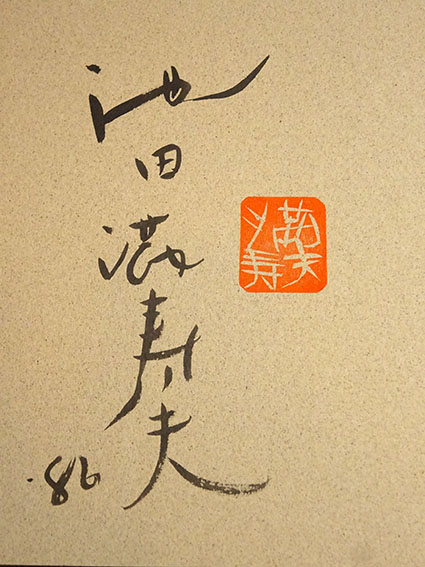 池田満寿夫
'86
満寿夫